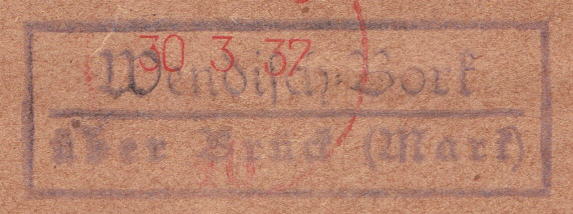 30 3 37
Wendisch Bork
über Brück (Mark)